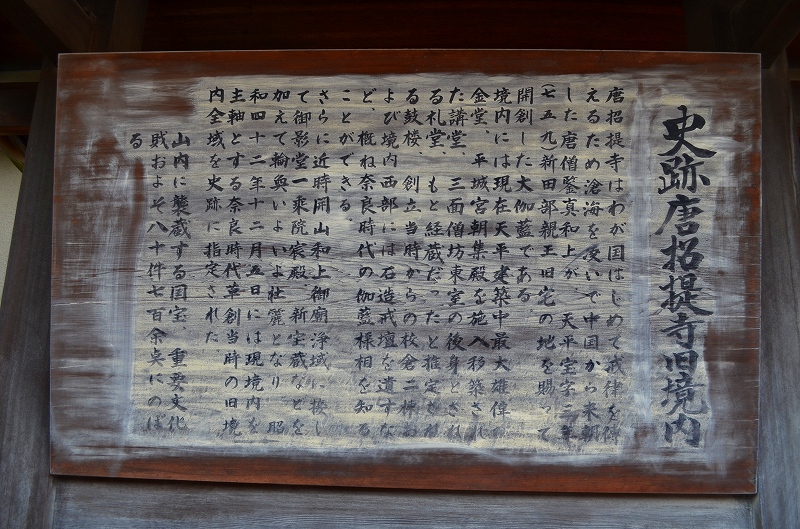 史跡唐招提寺旧境内
唐招提寺はわが国はじめて戒律を伝
えるため滄海を凌いで中国から来朝
した唐僧鑒真和上が、天平宝字三年
(七五九)新田部親王旧宅の地を賜って
開創した大伽藍である。
境内には現在天平建築中最大雄偉
金堂、平城宮朝集殿を施入移築され
た講堂、三面僧坊東室の後身とされ
る礼堂、もと経蔵だったと推定され
る鼓楼、創立当時からの校倉二棟お
よび境内西部には石造戒壇を遺すな
ど、概ね奈良時代の伽藍様相を知る
ことができる。
さらに近時開山和上御廟浄域に接し
て御影堂一乗院宸殿、新宝蔵などを
加えて輪奐いよいよ壮麗となり、昭
和四十二年十二月五日には現境内を
主軸とする奈良時代草創当時の旧境
内全域を史跡に指定された。
山内に襲蔵する国宝、重要文化
財およそ八十件七百余点にのぼ
る